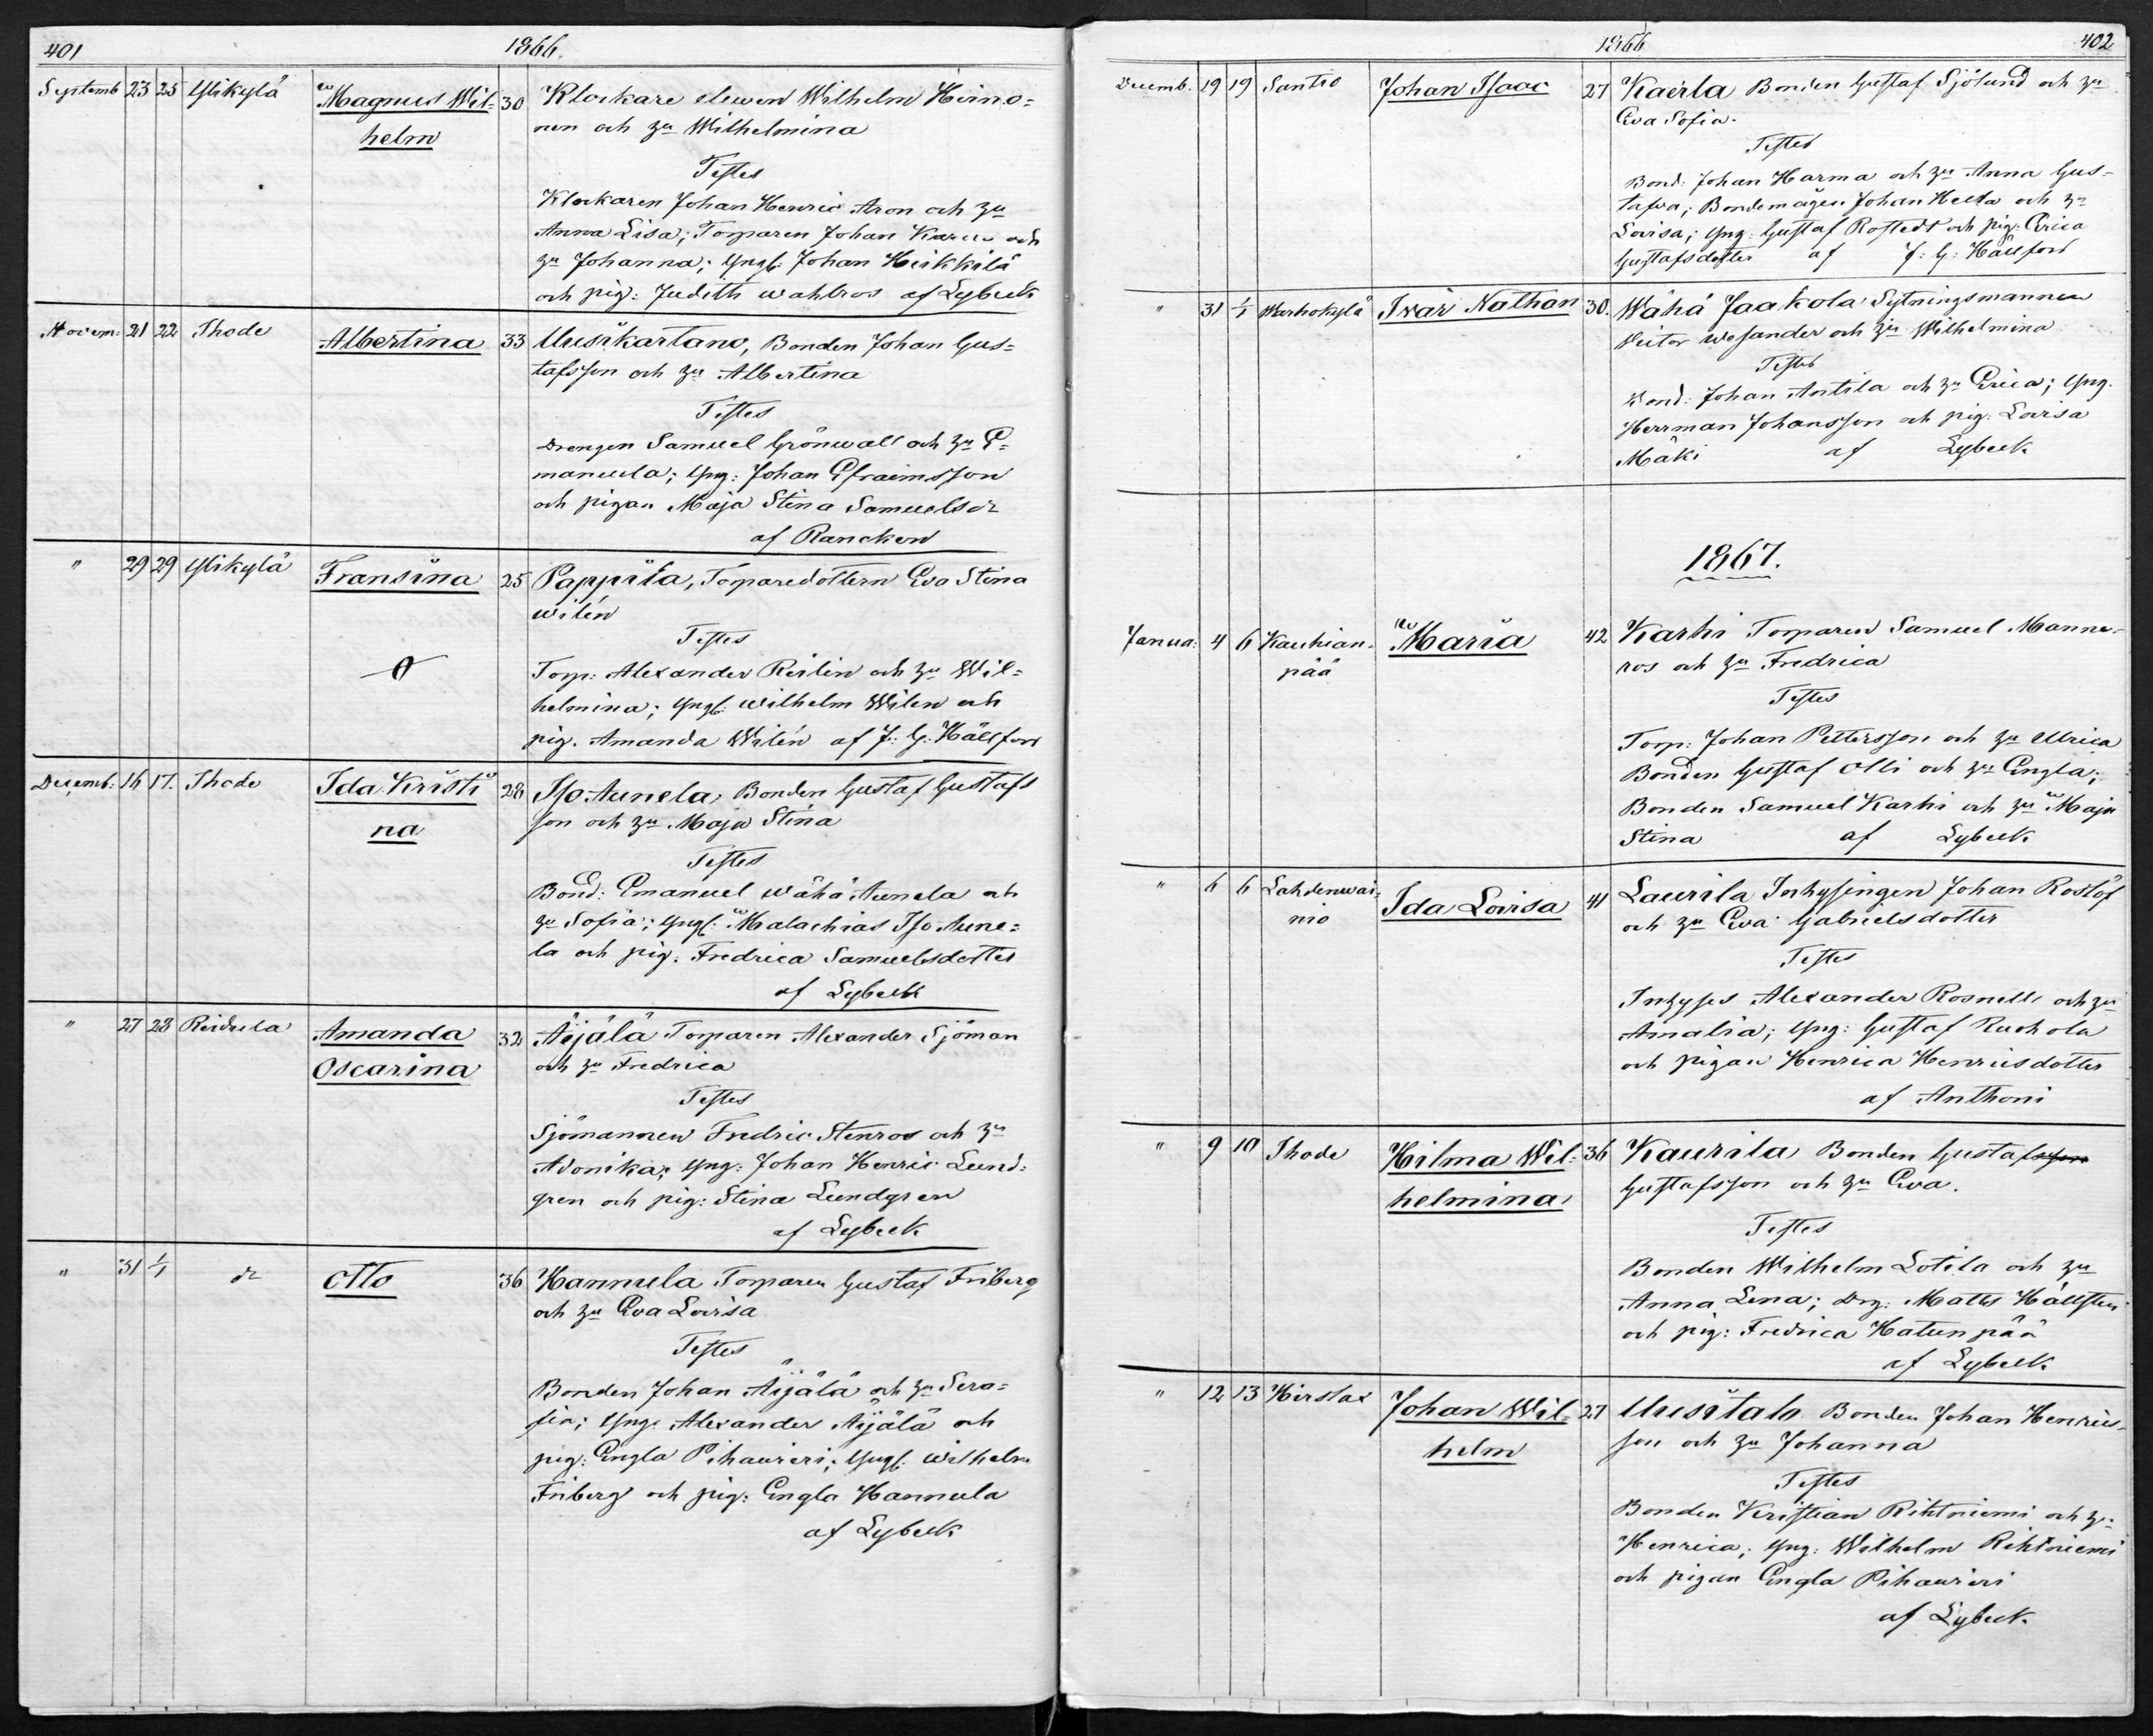 401
1866.
Septemb. 23 25 Ylikylä Magnus Wil- 30 Klockare elewen Wilhelm Heino=
helm nen och hu Wilhelmina
Testes
Klockaren Johan Henric Aron och hu
Anna Lisa; Torparen Johan och
hu Johanna; Yngl: Johan Heikkilä
och pig: Judith Wahlros af Lybeck
Novem: 21 22 Thode Albertina 33 Uusikartano, Bonden Johan Gus=
tafsson och hu Albertina
Testes
Drengen Samuel Grönwall och hu E=
manuela; Yng: Johan Efraimsson
och pigan Maja Stina Samuelsdr
af Rancken
" 29 29 Ylikylä Fransina 25 Pappila, Torparedottern Eva Stina
Wilén
Testes
Torp: Alexander Reilin och hu Wil=
helmina; Yngl: Wilhelm Wilen och
pig. Amanda Wilén af J: G: Hällfors
Decemb: 16 17. Thode Ida Kristi 28 Iso Aunela, Bonden Gustaf Gustafs
na son och hu Maja Stina
Testes
Bond: Emanuel Wähä Aunela och
hu Sofia; Yngl: Malachias Iso Aune=
la och pig: Fredrica Samuelsdotter
af Lybeck
" 27 28 Reidula Amanda 32 Äijälä Torparen Alexander Sjöman
Oscarina och hu Fredrica
Testes
Sjömannen Fredric Stenros och hu
Adonika; Yng: Johan Henric Lund=
gren och pig: Stina Lundgren
af Lybeck
" 31 1/1 dr Otto 36 Hannula Torparen Gustaf Friberg
och hu Eva Lovisa
Testes
Bonden Johan Äijälä och hu Sera=
fia; Yng: Alexander Äijälä och
pig: Engla Pihauseri; Yngl: Wilhelm
Friberg och pig: Engla Hannula
af Lybeck
1866
402
Decemb. 19 19 Santio Johan Isaac 27 Kairla Bonden Gustaf Sjölund och hu
Eva Sofia.
Testes
Bond: Johan Harma och hu Anna Gus=
tafva; Bondemågen Johan och hu
Lovisa; Yng: Gustaf Rostedt och pig: Erica
Gustafsdotter af J: G: Hällfors
" 31 1/1 Warhokylä Iwar Nathan 30. Wähä Jaakola Sytningsmannen
Victor Wesander och hu Wilhelmina
Testes
Bond: Johan Antila och hu Erica; Yng.
Herrman Johansson och pig: Lovisa
Mäki af Lybeck
1867.
Janua: 4 6 Kauhian- Maria 42 Karhi Torparen Samuel Manne-
pää ros och hu Fredrica
Testes
Torp: Johan Pettersson och hu Ulrica
Bonden Gustaf Olli och hu Engla;
Bonden Samuel Karhi och hu Maja
Stina af Lybeck
" 6 6 Lahdenwai- Ida Lovisa 41 Laurila Inhysingen Johan Roslöf
nio och hu Eva Gabrielsdotter
Testes
Inhyses Alexander Rosnell och hu
Amalia; Yng: Gustaf Ruohola
och pigan Henrica Henricsdotter
af Anthoni
" 9 10 Thode Hilma Wil= 36 Kaurila Bonden Gustafsson
helmina Gustafsson och hu Eva.
Testes
Bonden Wilhelm Lotila och hu
Anna Lena; Drg: Matts Hällsten
och pig: Fredrica Hatunpää
af Lybeck
" 12 13 Hirslax Johan Wil= 27 Uusitalo Bonden Johan Henrics-
helm son och hu Johanna
Testes
Bonden Kristian Rihtniemi och hu
Henrica; Yng: Wilhelm Rihtniemi
och pigan Engla Pihauseri
af Lybeck.